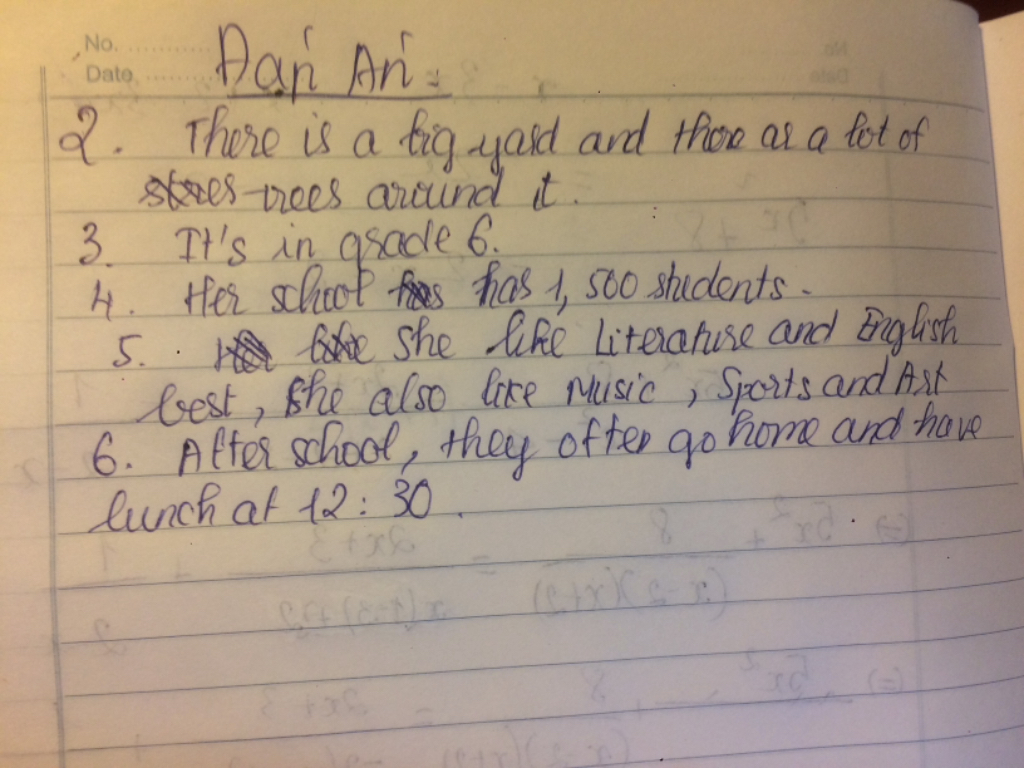 No.
Date
Đáp Án:
2. There is a big yard and there as a lot of
trees around it.
3. It's in grade 6.
4. Her school has 1,500 students.
5. She like Literature and English
best, she also like Music, Sports and Art
6. After school, they often go home and have
lunch at 12:30.